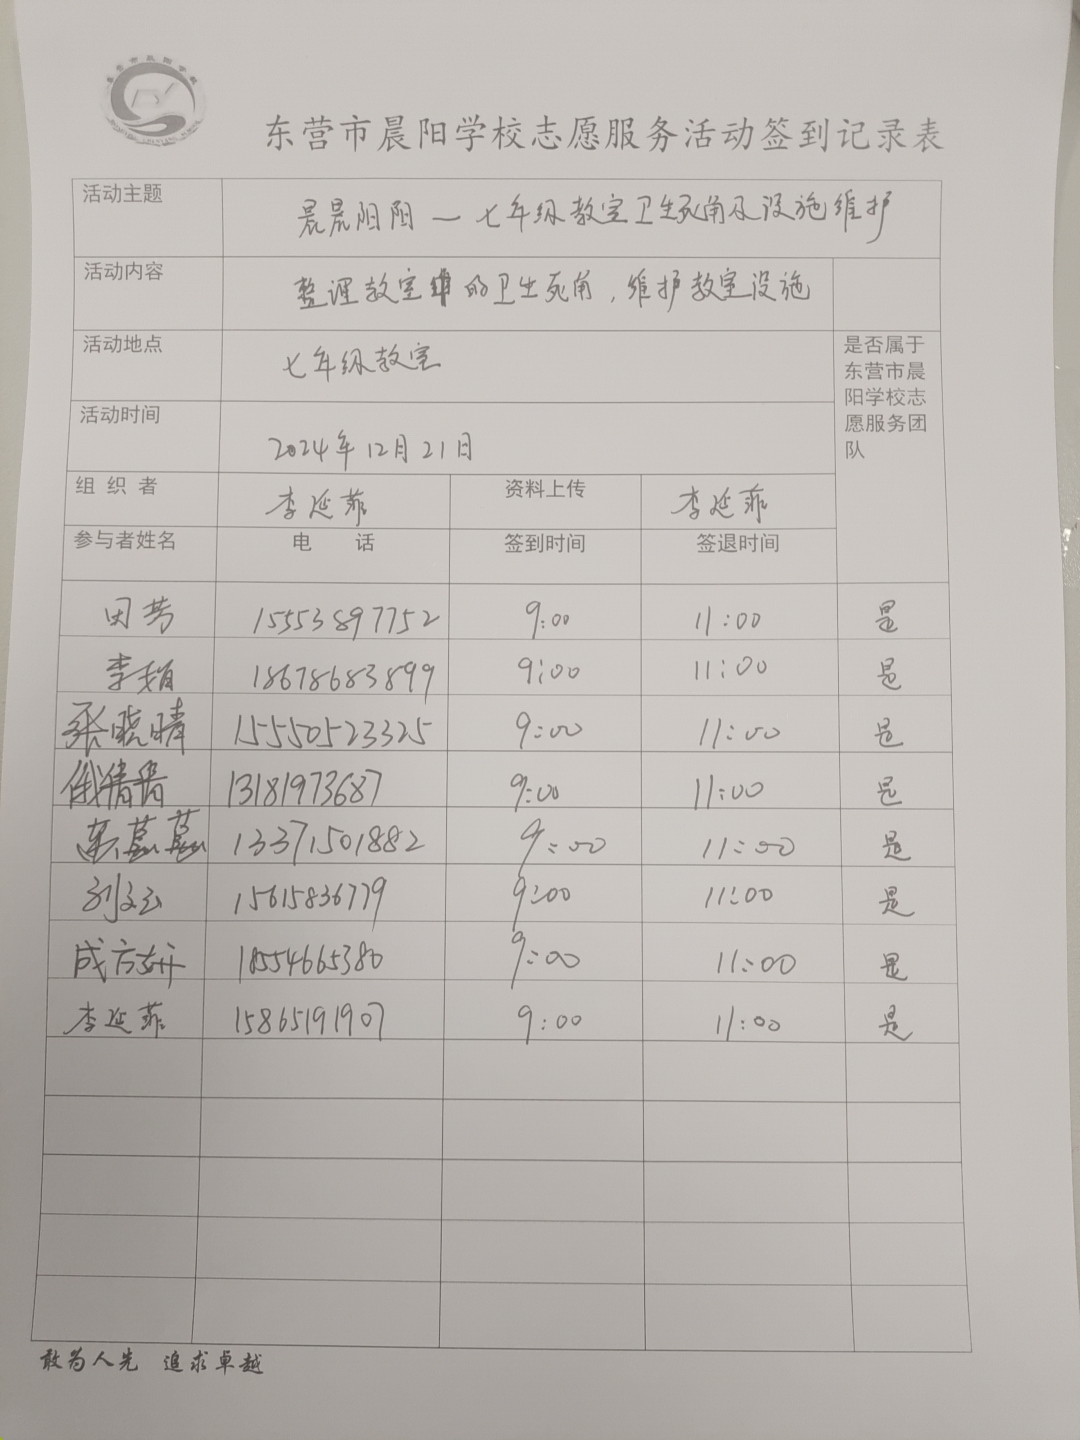 东营市晨阳学校志愿服务活动签到记录表
活动主题 晨晨阳阳一七年级教室卫生死角及设施维护
活动内容 整理教室的卫生死角，维护教室设施
活动地点 七年级教室
是否属于东营市晨阳学校志愿服务团队
活动时间 2024年12月21日
组织者 李延菲 资料上传 李延菲
参与者姓名 电 话 签到时间 签退时间
田芳 15553897752 9:00 11:00 是
李娟 18678683899 9:00 11:00 是
张晓晴 15550523325 9:00 11:00 是
13181973687 9:00 11:00 是
13371501882 9:00 11:00 是
刘文云 15615836779 9:00 11:00 是
成方妍 18554665380 9:00 11:00 是
李延菲 15865191907 9:00 11:00 是
敢为人先 追求卓越